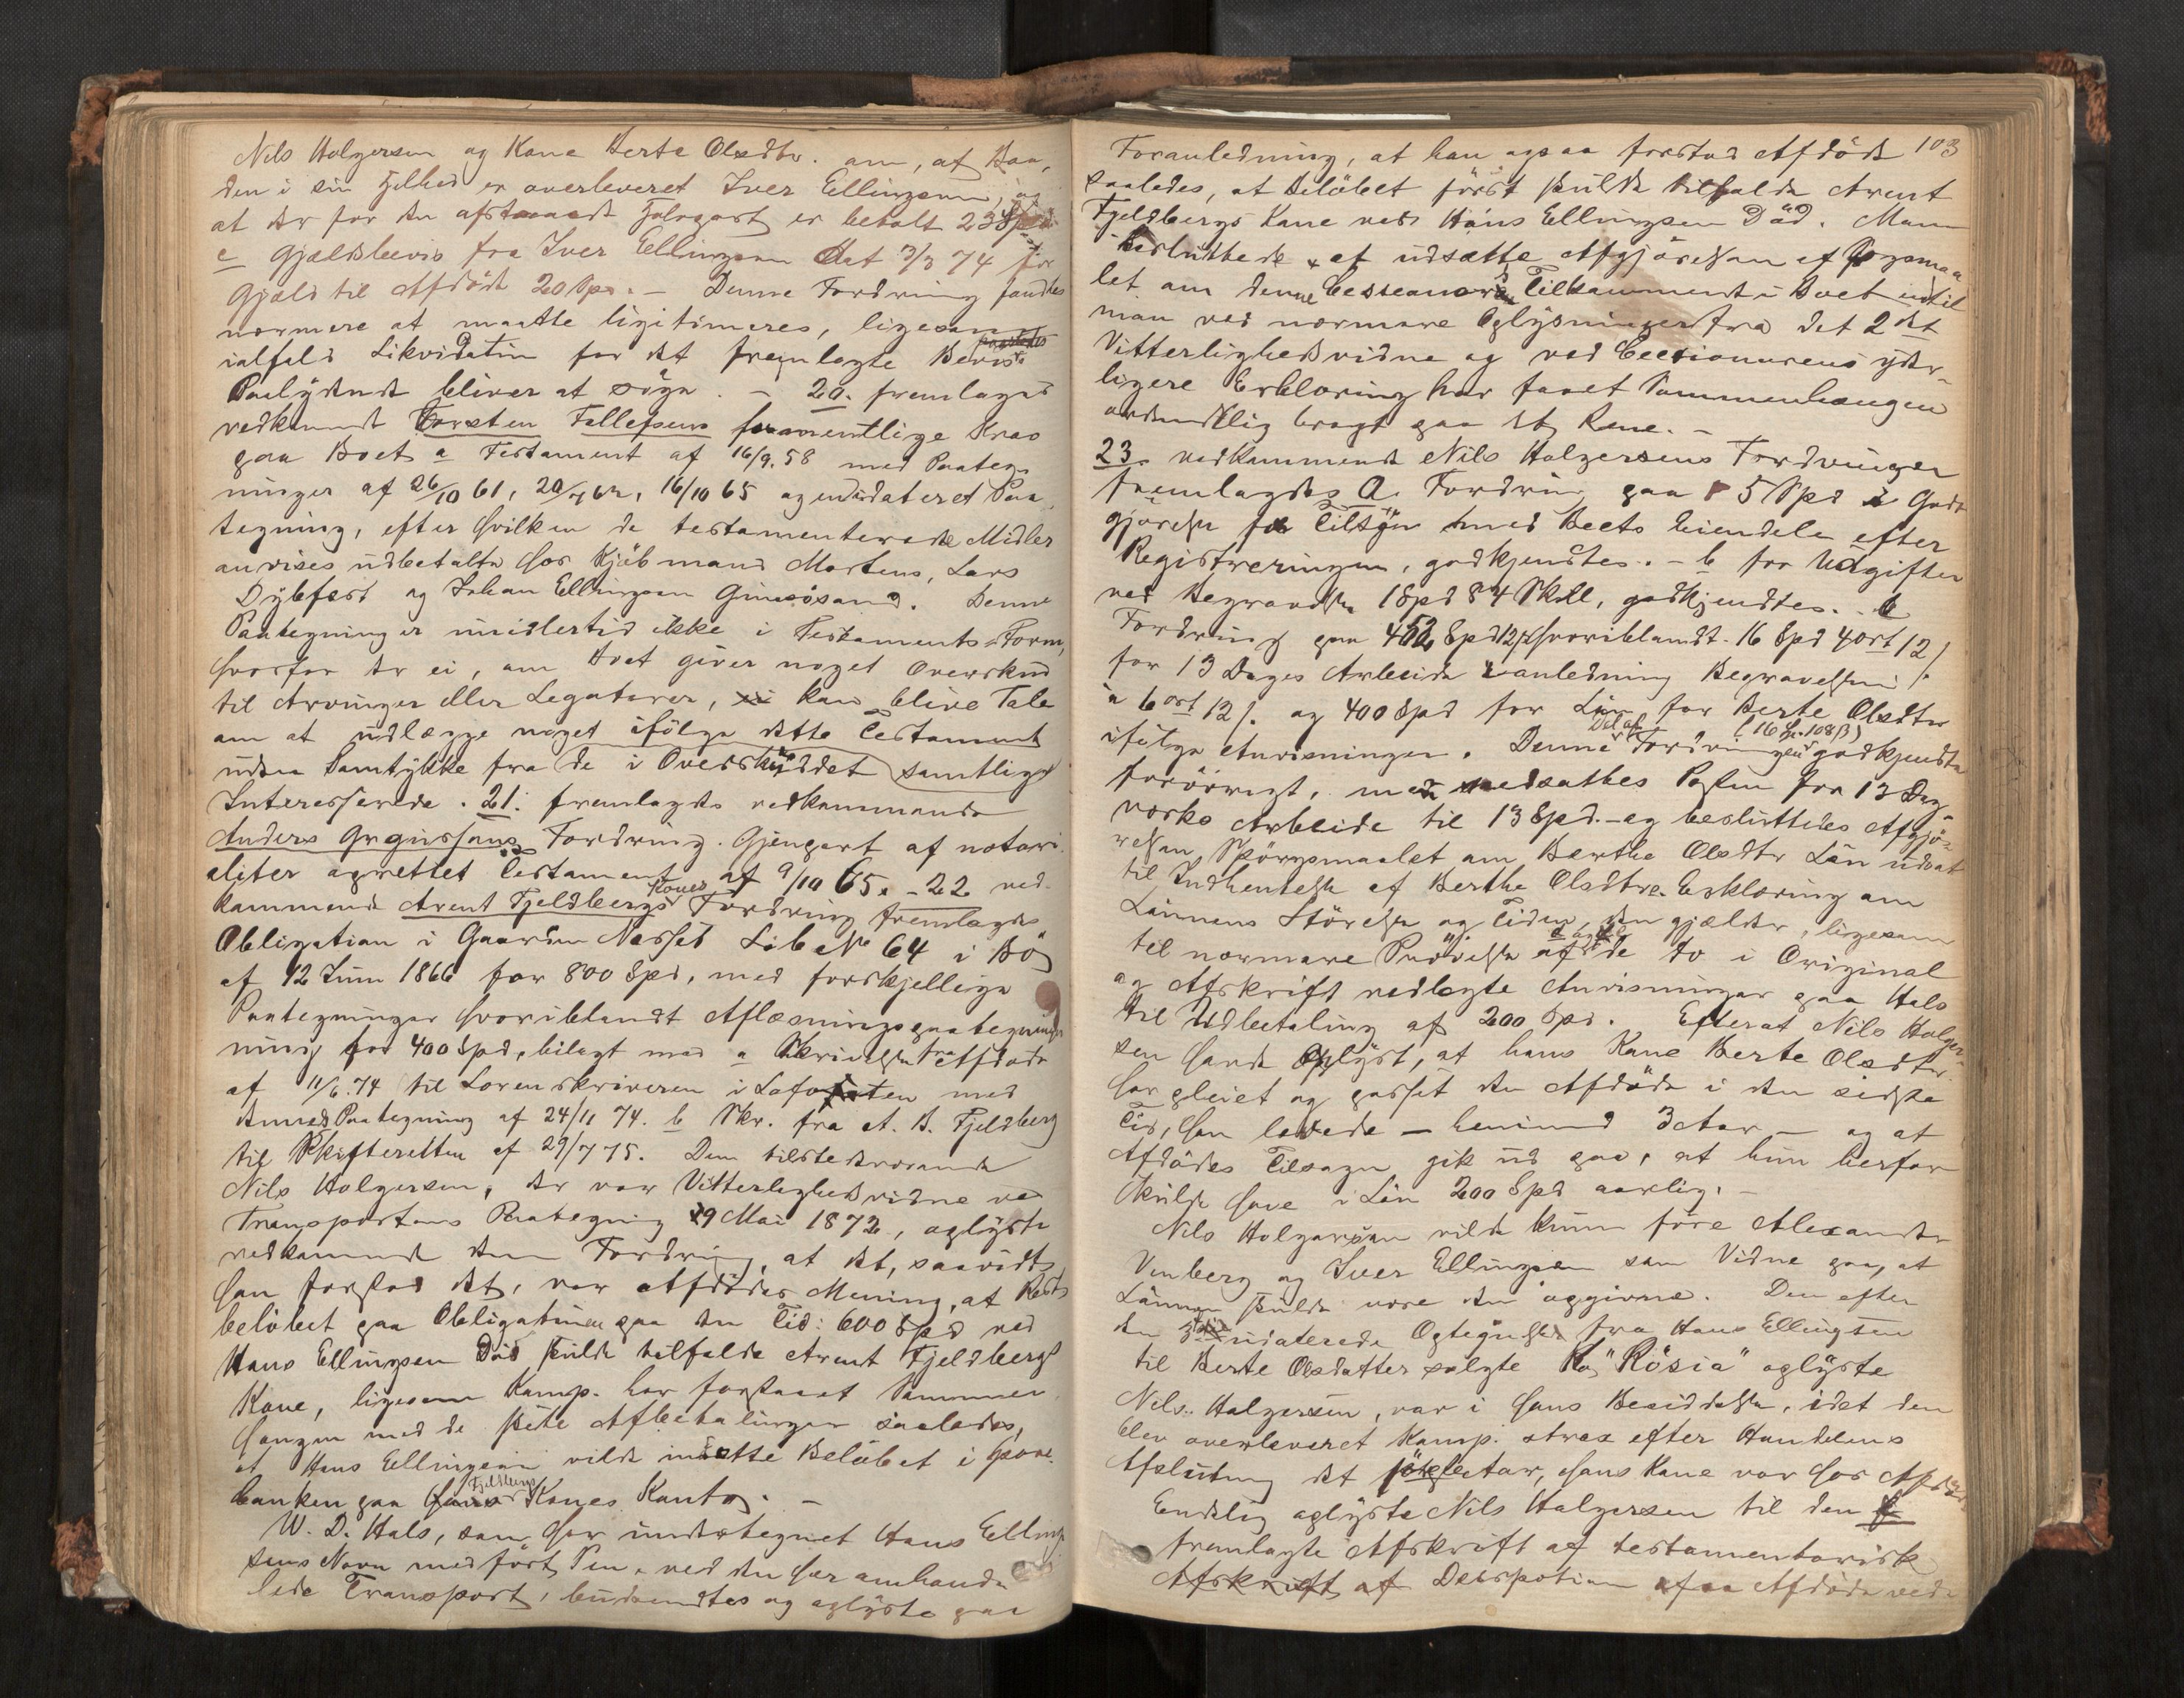 Nils Holgersen og Kone Berte Olsdtr. om, at Boa,
den i sin Helhed er overleveret Iver Ellingsen, og
at der for den afstaaede Halvpart er betalt 23
c Gjældsbevis fra Iver Ellingsen dat 3/3 74 for
Gjæld til Afdöde 20 Spd. – Denne Fordring fandtes
nærmere at maatte ligitimeres, ligesom
ialfald Likvidation for det fremlagte Bevis's
Paalydende bliver at söge. – 20. fremlagdes
vedkommende Torsten Tollefsens formentlige Krav
paa Boet a Testament af 16/9. 58 med Paateg-
ninger af 26/10 61, 20/7 62, 16/10 65 og udateret Paa-
tegning, efter hvilken de testamenterede Midler
anvises udbetalte hos Kjöbmand Mortens, Lars
Dybfest og Johan Ellingsen Gimsösand. Denne
Paategning er imidlertid ikke i Testaments-Form,
hvorfor der ei, om Boet giver noget Overskud
til Arvinger eller Legatarer, kan blive Tale
om at udlægge noget ifölge dette Testament
uden Samtykke fra de i Overskuddet samtlige
Interesserede. 21. fremlagdes vedkommende
Anders Gregussens Fordring. Gjenpart af notari-
aliter oprettet Testament af 9/10 65. – 22 ved-
kommende Arent Fjeldbergs Kones Fordring fremlagdes
Obligation i Gaarden Nesset Löbe No 64 i Bö
af 12 Juni 1866 for 800 Spd, med forskjellige
Paategninger hvoriblandt Aflæsningspaategning
ning for 400 Spd, bilagt med a Skrivelse fra Afdöde
af 11/6. 74 til Sorenskriveren i Lofoten med
dennes Paategning af 24/11 74. b Skr. fra A. B. Fjeldberg
til Skifteretten af 29/7 75. Den tilstedeværende
Nils Holgersen, der var Vitterlighedsvidne ved
Transportens Paategning 29 Mai 1872, oplyste
vedkommende denne Fordring, at det, saavidt
han forstod det, var Afdödes Mening, at Rest-
belöbet paa Obligationen paa den Tid: 600 Spd ved
Hans Ellingsens Död skulde tilfalde Arent Fjeldbergs
Kone, ligesom Komp. har forstaaet Sammen-
hængen med de skete Afbetalinger saaledes,
at Hans Ellingsen vilde indsætte Belöbet i Spare-
banken paa Fjeldbergs Kones Konto. –
W. D. Hals, som har undertegnet Hans Elling-
sens Navn med fört Pen, ved den her omhand-
lede Transport, fremstod og oplyste paa
Foranledning, at han ogsaa forstod Afdöde 103
saaledes, at Belöbet först skulde tilfalde Arent
Fjeldbergs Kone ved Hans Ellingsens Död. Man
besluttede at udsætte Afgjörelsen af Spörgsmaa-
let om denne Cessionærs Tilkommende i Boet indtil
man ved nærmere Oplysninger fra det 2det
Vitterlighedsvidne og ved Cessionarens yder-
ligere Erklæring har faaet Sammenhængen
ordentlig bragt paa det Rene. –
23. vedkommende Nils Holgersens Fordringer
fremlagdes a. Fordring paa 5 Spd i Godt-
gjörelse for Tilsyn med Boets Eiendele efter
Registreringen, godkjendtes. – b for Udgifter
ved Begravelse 1 Spd 84 Skill, godkjendtes. – c
Fordring paa 452 Spd 12 s hvoriblandt 16 Spd 4 ort 12 s
for 13 Dages Arbeide i anledning Begravelsen
a 6 ort 12 s. og 400 Spd for Lön for Berte Olsdtr
ifölge Anvisninger. Denne Del af Fordringen (16 Sp. 108 s) godkjendtes
forövrigt, med nedsattes Posten for 13 Dag-
værks Arbeide til 13 Spd. – og besluttedes Afgjö-
relsen Spörgsmaalet om Berthe Olsdtr Lön udsat
til Indhentelse af Berthe Olsdtrs Erklæring om
Lönnens Störrelse og Tiden, den gjælder, ligesom
til nærmere Prövelse af de to i Original
og Afskrift vedlagte Anvisninger paa Hals
til Udbetaling af 200 Spd. Efterat Nils Holger-
sen havde oplyst, at hans Kone Berte Olsdtr
har pleiet og passet den Afdöde i den sidste
Tid, han levede – henimod 3 Aar – og at
Afdödes Tilsagn gik ud paa, at hun herfor
skulde have i Lön 200 Spd aarlig. –
Nils Holgersen vilde kunne före Alexander
Venberg og Iver Ellingsen som Vidne paa, at
Lönnen skulde være den opgivne. Den efter
den udaterede Optegnelse fra Hans Ellingsen
til Berte Olsdatter solgte Ko "Rösia" oplyste
Nils Holgersen, var i hans Besiddelse, idet den
blev overleveret Komp. strax efter Handelens
Afslutning det förste Aar, hans Kone var hos Afdöde.
Endelig oplyste Nils Holgersen til den f
fremlagte Afskrift af testamentarisk
Afskrift af Dispotion afaa Afdöde ved